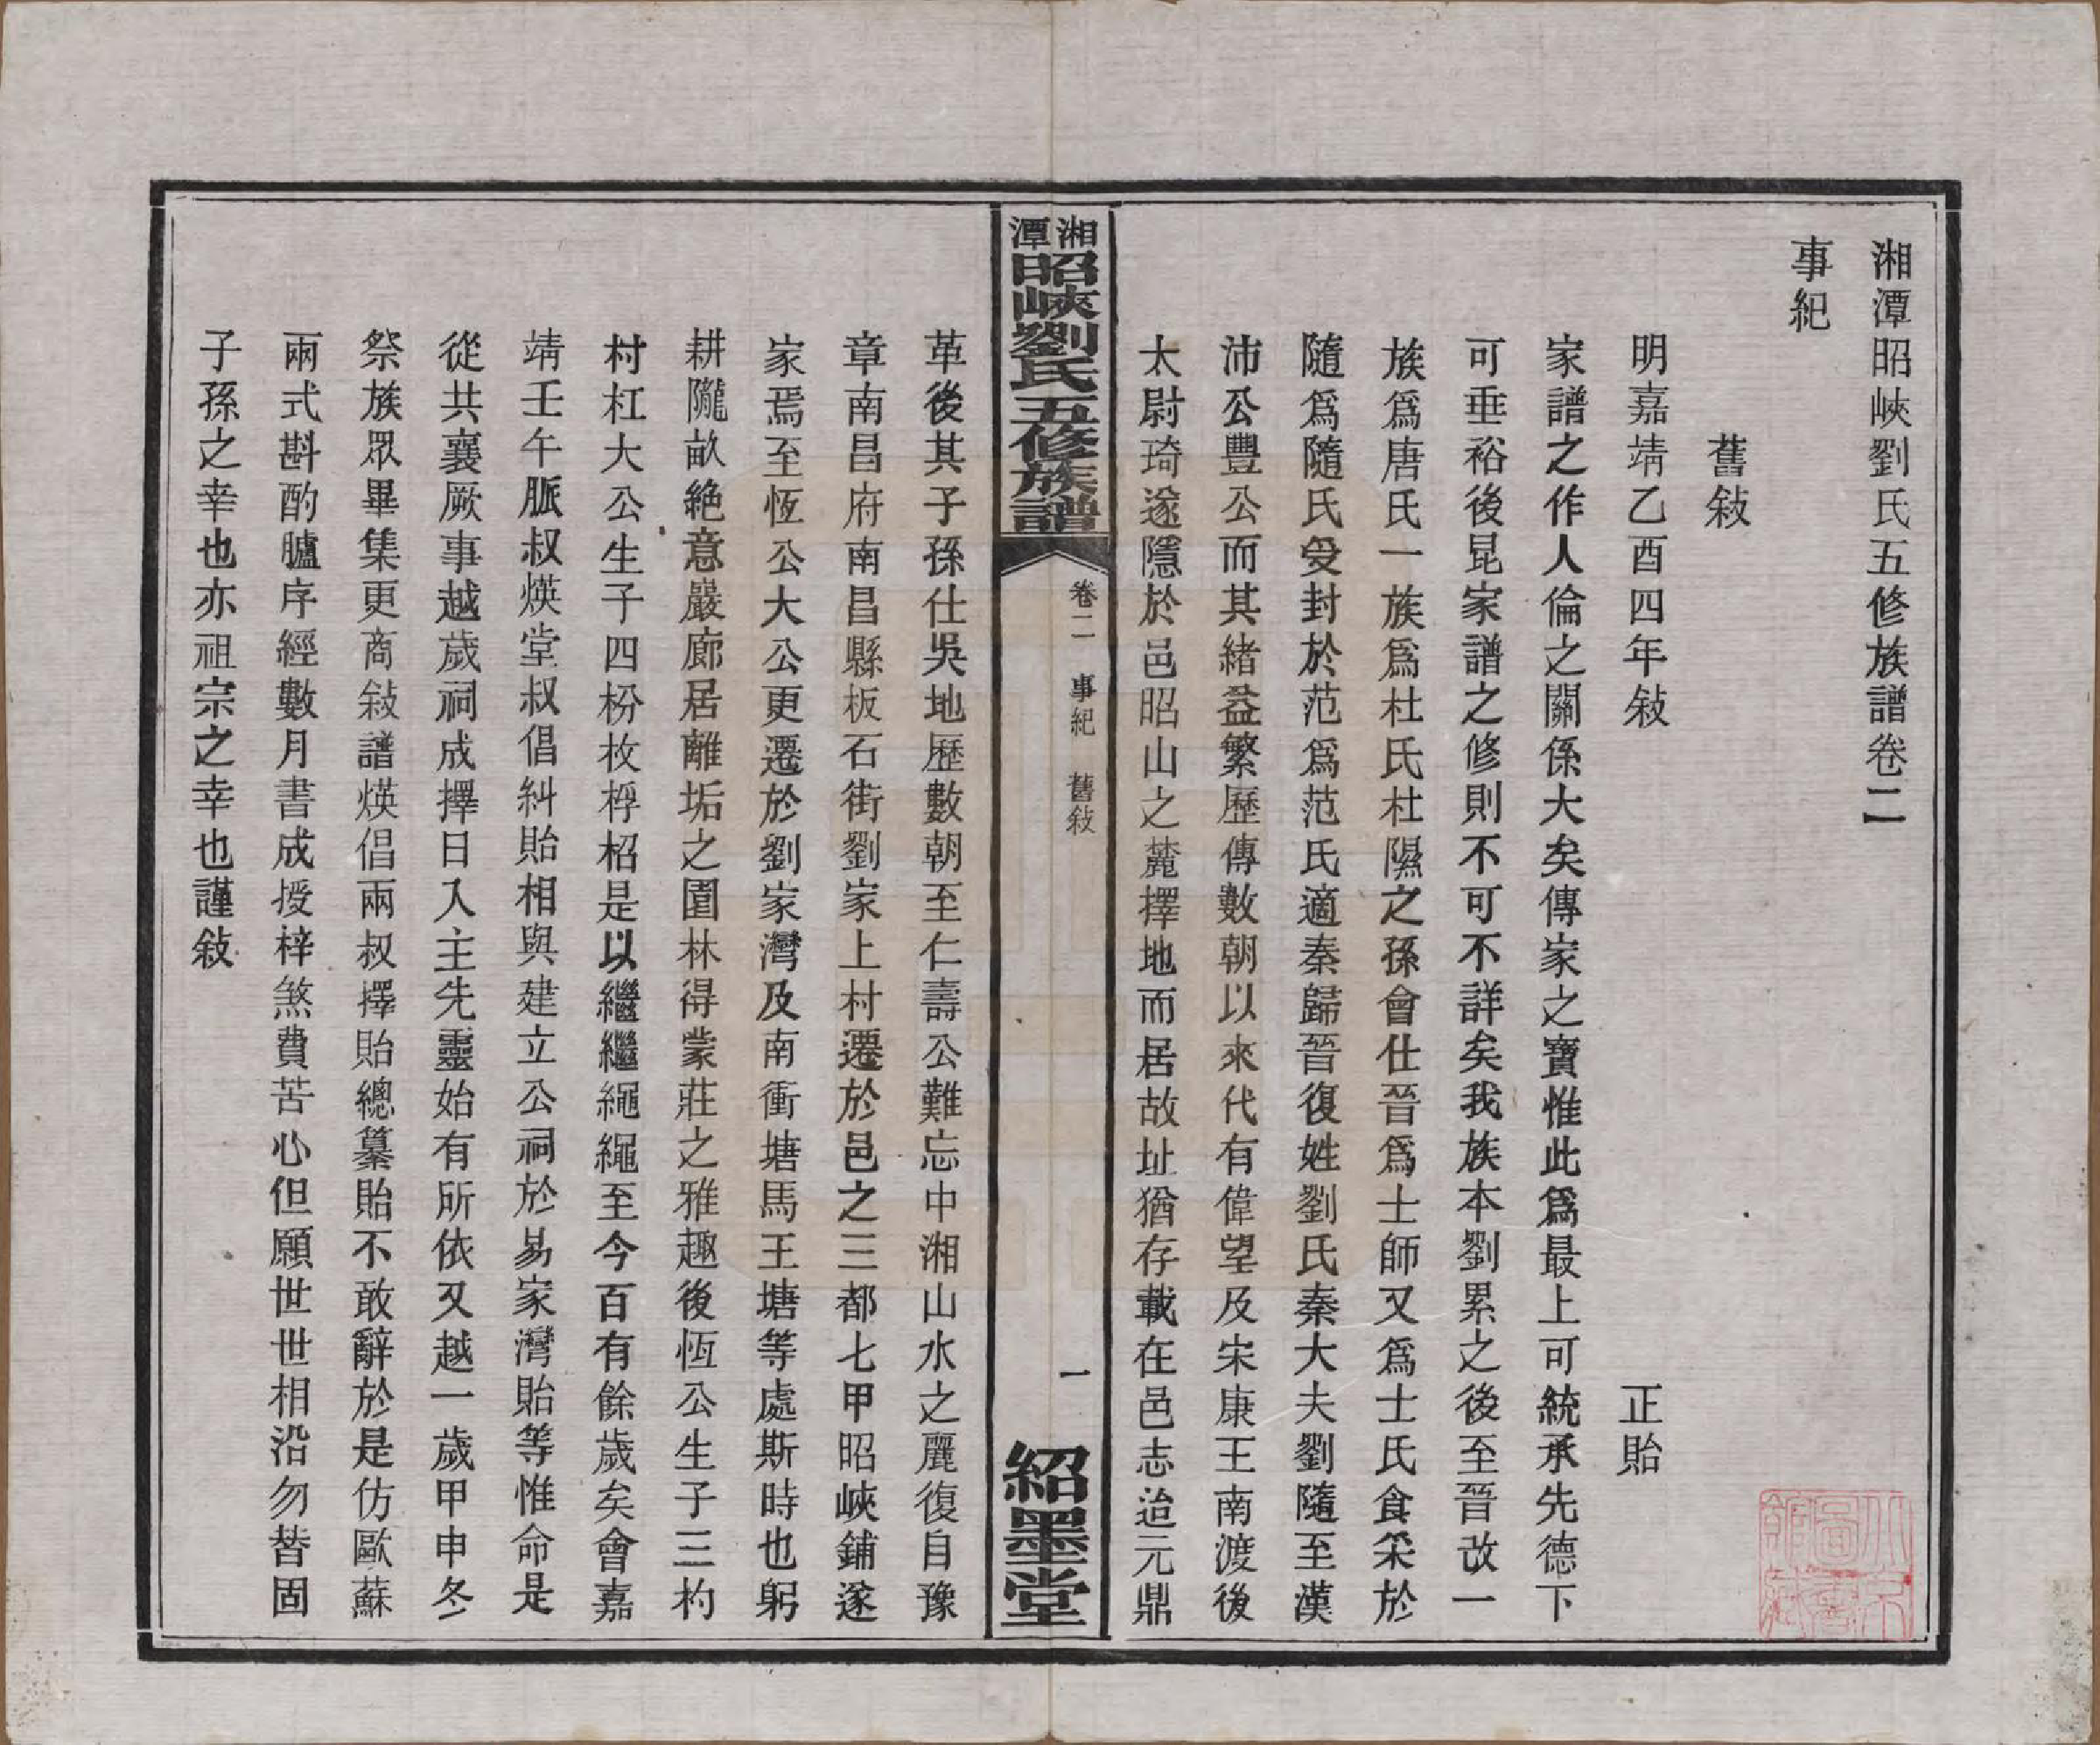 湘潭昭峽劉氏五修族譜卷二
事紀
舊敍
明嘉靖乙酉四年敍 正貽
家譜之作人倫之關係大矣傳家之寶惟此爲最上可統承先德下
可垂裕後昆家譜之修則不可不詳矣我族本劉累之後至晉改一
族爲唐氏一族爲杜氏杜隰之孫會仕晉爲士師又爲士氏食采於
隨爲隨氏受封於范爲范氏適秦歸晉復姓劉氏秦大夫劉隨至漢
沛公豐公而其緒益繁歷傳數朝以來代有偉望及宋康王南渡後
太尉琦遂隱於邑昭山之麓擇地而居故址猶存載在邑志迨元鼎
湘潭昭峽劉氏五修族譜
卷二 事紀 舊敍
一
紹墨堂
革後其子孫仕吳地歷數朝至仁壽公難忘中湘山水之麗復自豫
章南昌府南昌縣板石街劉家上村遷於邑之三都七甲昭峽鋪遂
家焉至恆公大公更遷於劉家灣及南衝塘馬王塘等處斯時也躬
耕隴畝絶意巖廊居離垢之園林得蒙莊之雅趣後恆公生子三杓
村杠大公生子四枌枚桴柖是以繼繼繩繩至今百有餘歲矣會嘉
靖壬午脈叔煐堂叔倡糾貽相與建立公祠於易家灣貽等惟命是
從共襄厥事越歲祠成擇日入主先靈始有所依又越一歲甲申冬
祭族眾畢集更商敍譜煐倡兩叔擇貽總纂貽不敢辭於是仿歐蘇
兩式斟酌臚序經數月書成授梓煞費苦心但願世世相沿勿替固
子孫之幸也亦祖宗之幸也謹敍